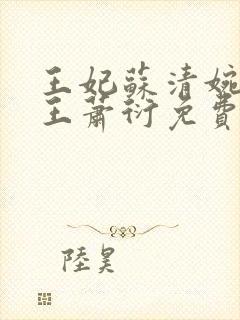 王妃蘇清婉
王蕭衍免費
陸昊